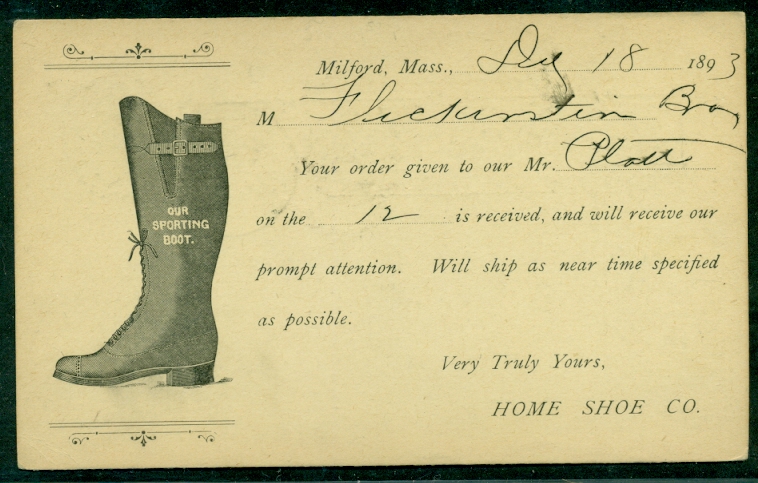 Milford, Mass., Dec 18 1893
M Fleckenstein Bros
Your order given to our Mr. Platt
OUR
SPORTING
BOOT.
on the 12 is received, and will receive our
prompt attention. Will ship as near time specified
as possible.
Very Truly Yours,
HOME SHOE CO.